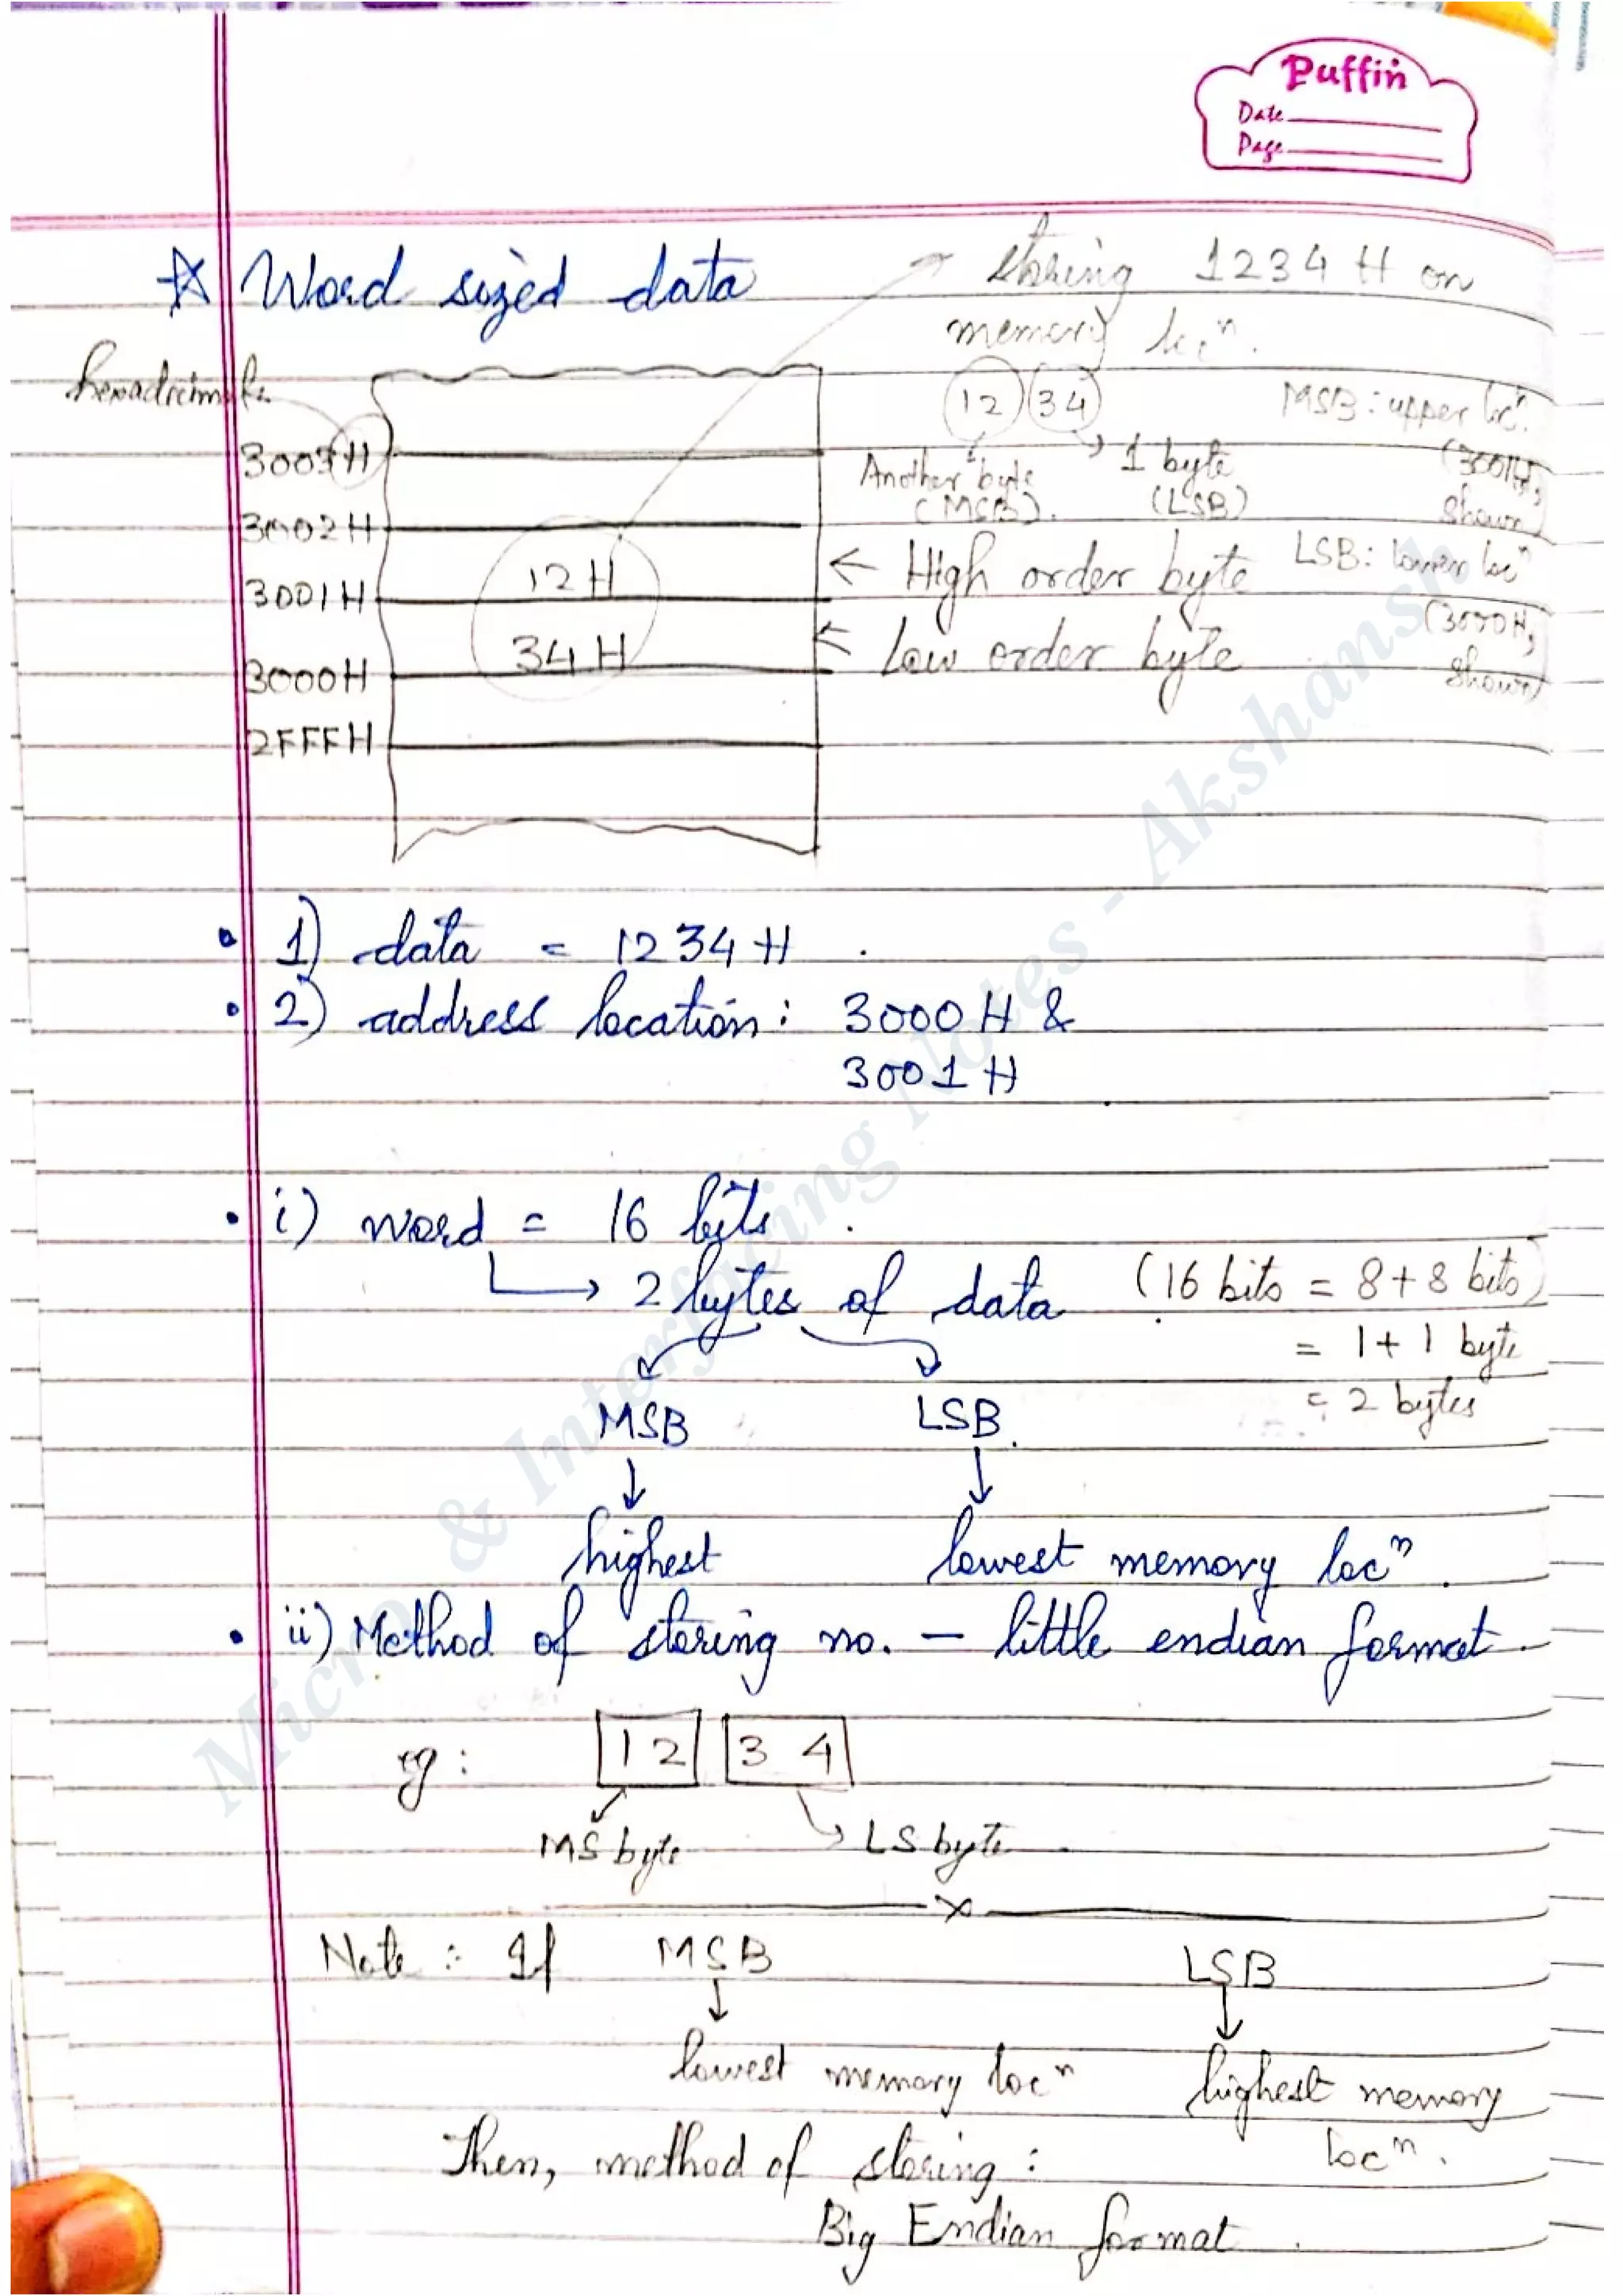 Puffin
Date
Page
☆ Word sized data
storing 1234 H on
memory locⁿ.
hexadecimal
12 34
MSB : upper locⁿ.
(3001H,
shown)
Another byte
(MSB).
1 byte
(LSB)
LSB : lower locⁿ
(3000H,
shown)
3003H
3002H
3001H 12H ← High order byte
3000H 34H ← Low order byte
2FFFH
• 1) data = 1234 H .
• 2) address location : 3000 H &
3001 H
• i) word = 16 bits .
→ 2 bytes of data (16 bits = 8+8 bits)
= 1+1 byte
= 2 bytes
MSB LSB.
↓ ↓
highest lowest memory locⁿ.
• ii) Method of storing no. – little endian format.
eg : 12 34
MS byte LS byte
x
Note : If MSB LSB
↓ ↓
lowest memory locⁿ highest memory
locⁿ.
Then, method of storing :
Big Endian format .
Micro & Interfacing Notes - Akshansh